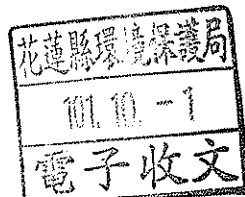 花蓮縣環境保護局
101.10.-1
電子收文